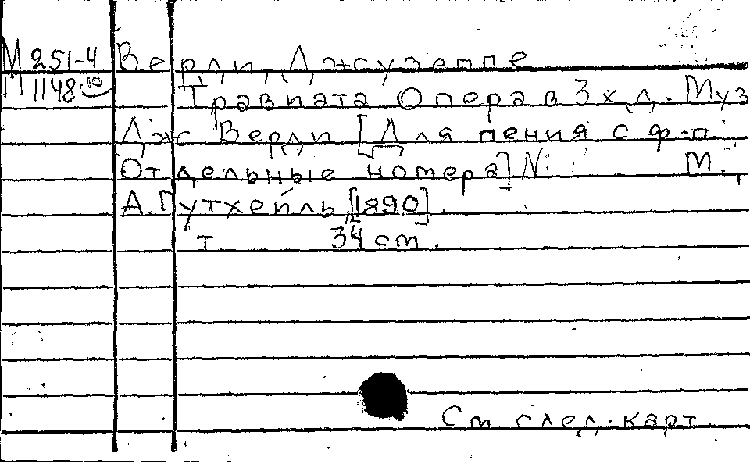 М 251-4 Верди, Джузеппе
М 1148
Травиата Опера в 3х д. Муз
Дж Верди [Для пения с ф-п.
Отдельные номера] N: М.,
А. Гутхейль, [1890].
т. 34 см.
См след. карт.